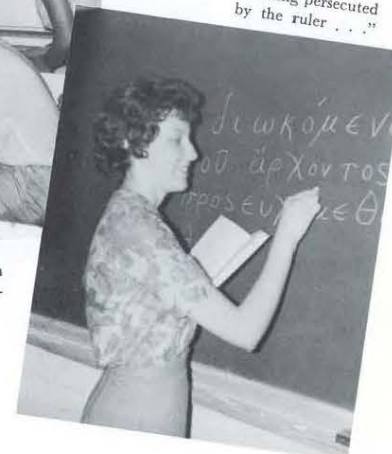 persecuted
by the ruler . . .”
διωκόμεν
οῦ ἄρχοντος
προσευχ